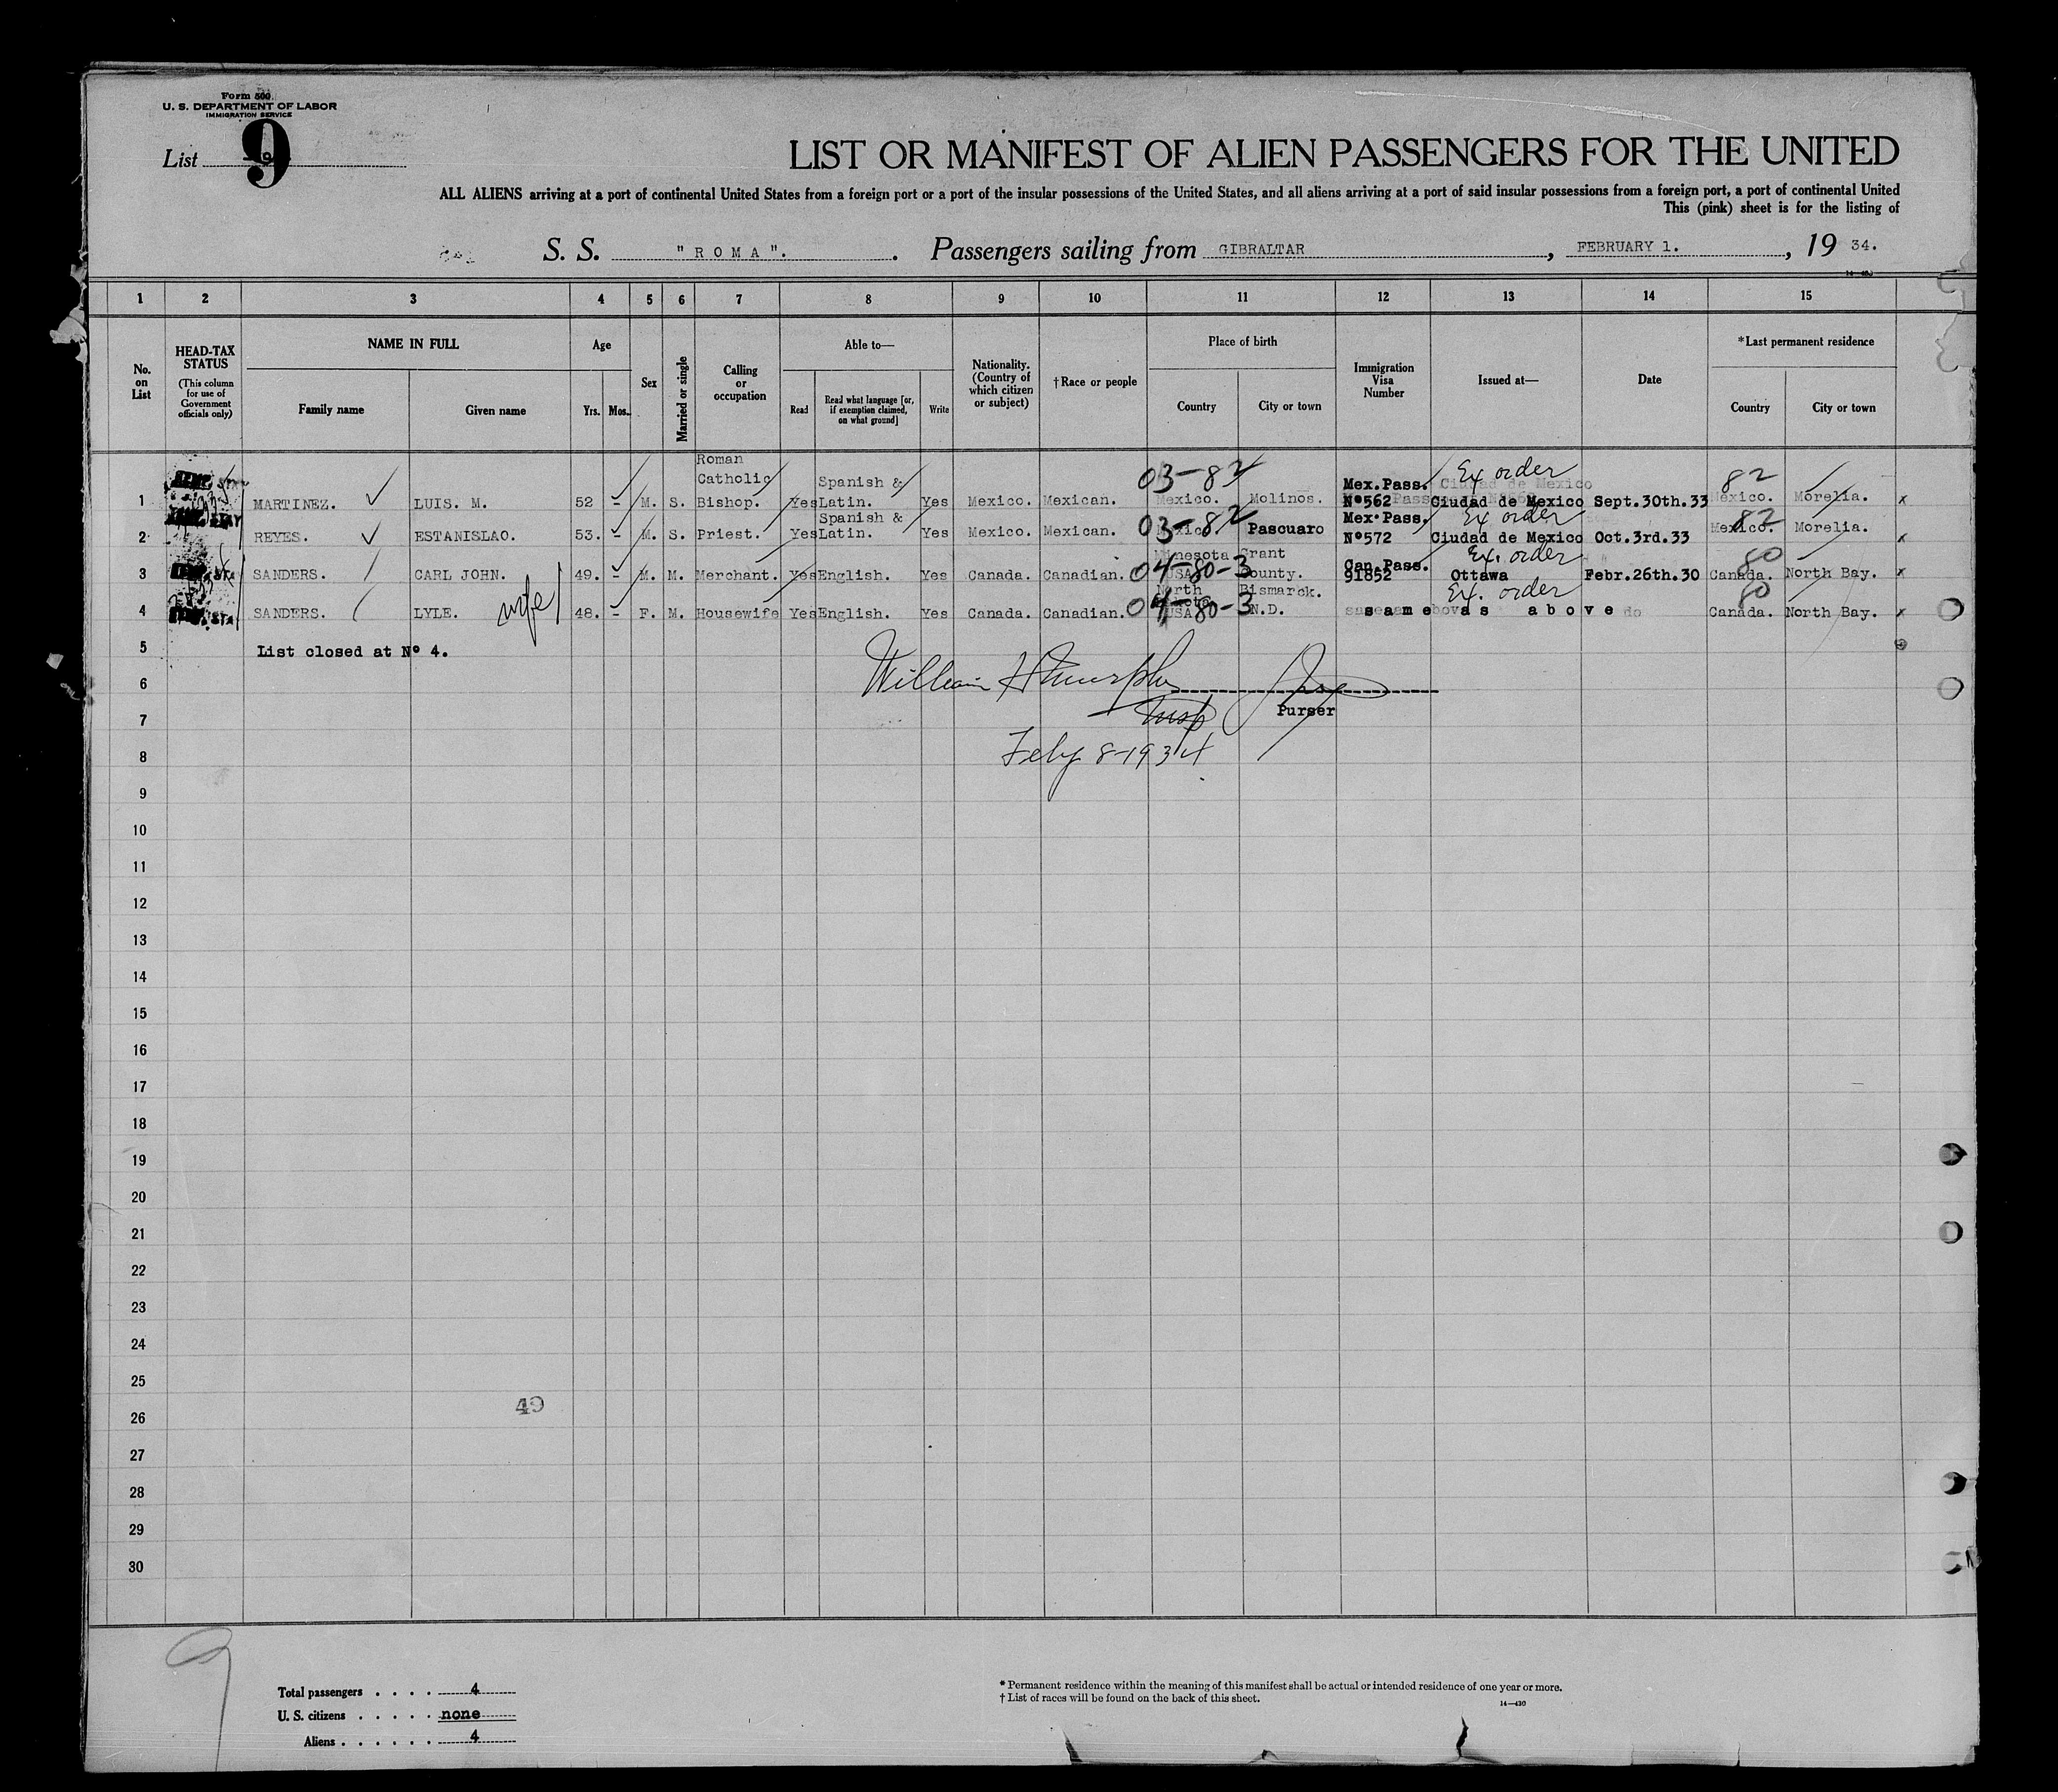 Form 500
U. S. DEPARTMENT OF LABOR
IMMIGRATION SERVICE
List 9
LIST OR MANIFEST OF ALIEN PASSENGERS FOR THE UNITED
ALL ALIENS arriving at a port of continental United States from a foreign port or a port of the insular possessions of the United States, and all aliens arriving at a port of said insular possessions from a foreign port, a port of continental United
This (pink) sheet is for the listing of
S. S. "ROMA". Passengers sailing from GIBRALTAR, FEBRUARY 1., 19 34.
1 2 3 4 5 6 7 8 9 10 11 12 13 14 15
No. on List
HEAD-TAX STATUS (This column for use of Government officials only)
NAME IN FULL Family name Given name
Age Yrs. Mos.
Sex
Married or single
Calling or occupation
Able to— Read Read what language [or, if exemption claimed, on what ground] Write
Nationality. (Country of which citizen or subject)
†Race or people
Place of birth Country City or town
Immigration Visa Number
Issued at—
Date
*Last permanent residence Country City or town
1 MARTINEZ. LUIS. M. 52 - M. S. Roman Catholic Bishop. Yes Spanish & Latin. Yes Mexico. Mexican. 03-82 Mexico. Molinos. Mex.Pass. Nº562 Ex order Ciudad de Mexico Sept.30th.33 82 Mexico. Morelia. x
2 REYES. ESTANISLAO. 53. - M. S. Priest. Yes Spanish & Latin. Yes Mexico. Mexican. 03-82 Mexico. Pascuaro Mex.Pass. Nº572 Ex order Ciudad de Mexico Oct.3rd.33 82 Mexico. Morelia. x
3 SANDERS. CARL JOHN. 49. - M. M. Merchant. Yes English. Yes Canada. Canadian. 04-80-3 Minesota USA Grant County. Can.Pass. 91852 Ex. order Ottawa Febr.26th.30 80 Canada. North Bay. x
4 SANDERS. LYLE. wife 48. - F. M. Housewife Yes English. Yes Canada. Canadian. 04-80-3 North USA Bismarck. N.D. Ex. order same as above 80 Canada. North Bay. x
5 List closed at Nº 4.
6 William H Murphy
7 Insp Purser
8 Feby 8-1934
9
10
11
12
13
14
15
16
17
18
19
20
21
22
23
24
25
49
26
27
28
29
30
9
Total passengers . . . . 4
U. S. citizens . . . . . none
Aliens . . . . . . 4
* Permanent residence within the meaning of this manifest shall be actual or intended residence of one year or more.
† List of races will be found on the back of this sheet.
14—430